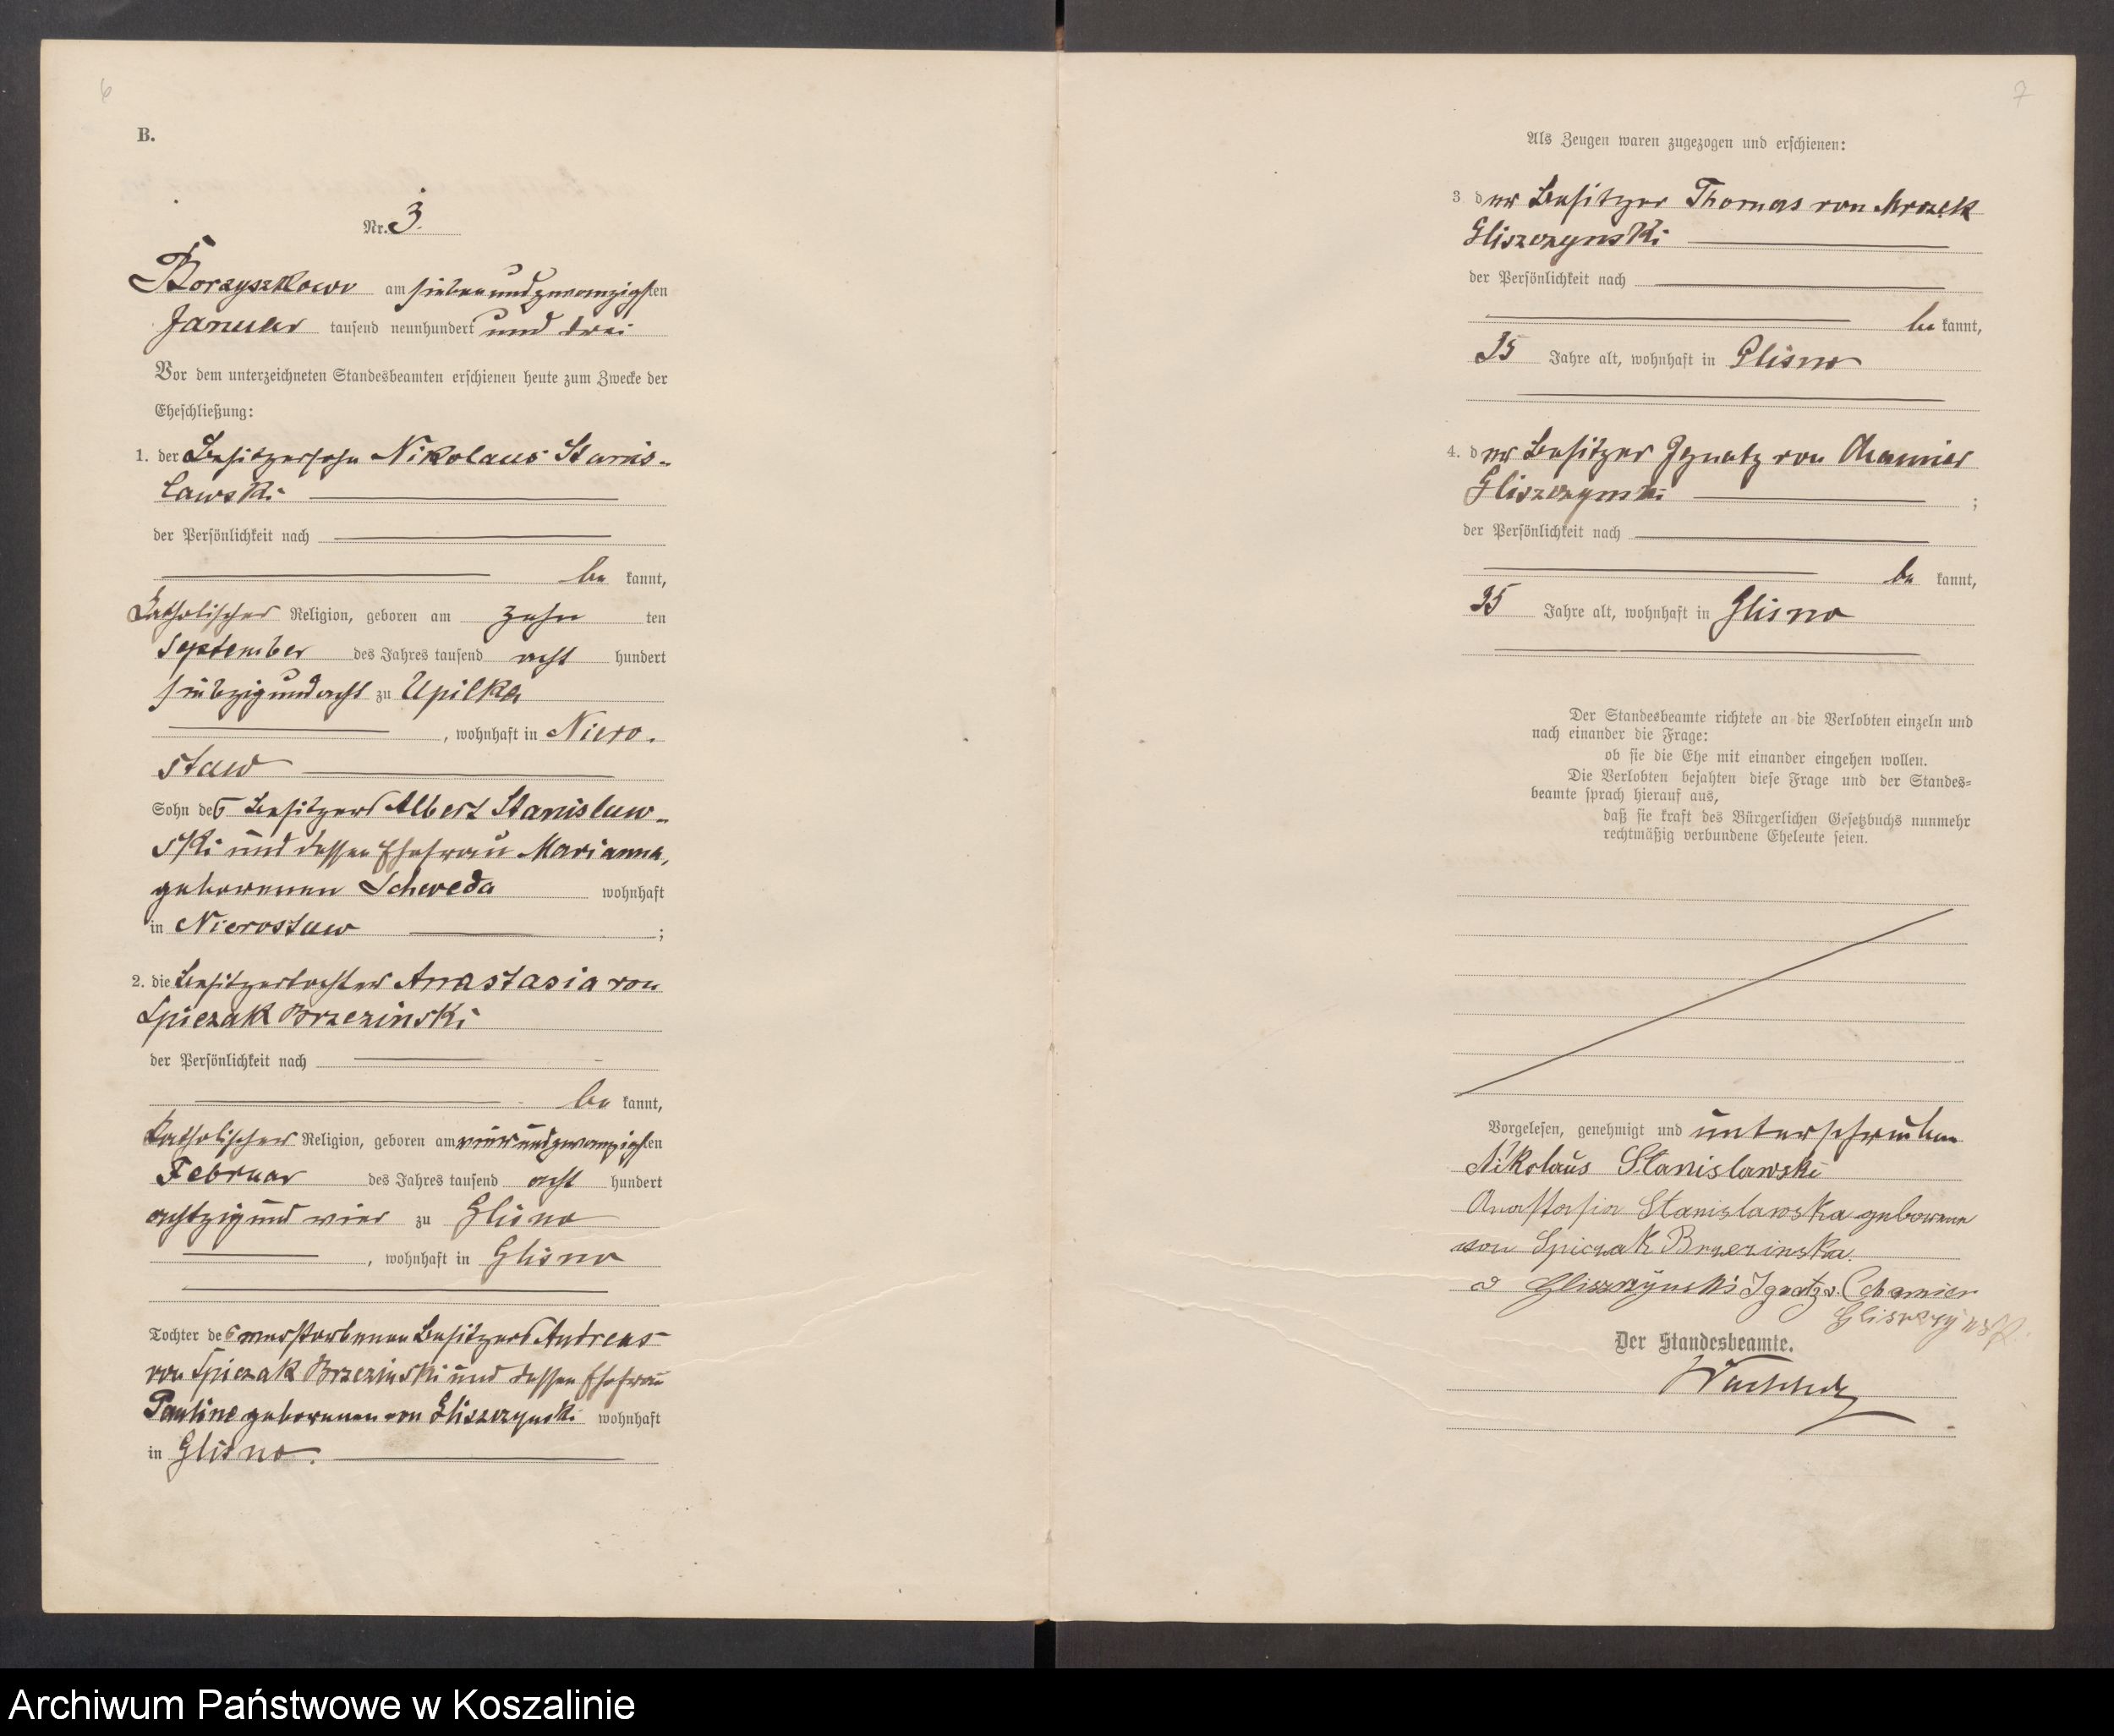 6
B.
Nr. 3.
Borzyszkowo am siebenundzwanzigsten
Januar tausend neunhundert und drei
Vor dem unterzeichneten Standesbeamten erschienen heute zum Zwecke der
Eheschließung:
1. der Besitzersohn Nikolaus Stanis-
lawski
der Persönlichkeit nach
be kannt,
katholischer Religion, geboren am zehn ten
September des Jahres tausend acht hundert
siebzig und acht zu Upilka
, wohnhaft in Niero-
staw
Sohn des Besitzers Albert Stanislaw-
ski und dessen Ehefrau Marianna,
geborenen Schweda wohnhaft
in Nierostaw ;
2. die Besitzertochter Anastasia von
Spiczak Brzezinski
der Persönlichkeit nach
be kannt,
katholischer Religion, geboren am vierundzwanzigsten
Februar des Jahres tausend acht hundert
achtzig und vier zu Glisno
, wohnhaft in Glisno
Tochter des verstorbenen Besitzers Andreas
von Spiczak Brzezinski und dessen Ehefrau
Pauline geborenen von Gliszczynski wohnhaft
in Glisno.
7
Als Zeugen waren zugezogen und erschienen:
3 der Besitzer Thomas von Mrozek
Gliszczynski
der Persönlichkeit nach
be kannt,
35 Jahre alt, wohnhaft in Glisno
4. der Besitzer Ignatz von Chamier
Gliszczynski ;
der Persönlichkeit nach
be kannt,
35 Jahre alt, wohnhaft in Glisno
Der Standesbeamte richtete an die Verlobten einzeln und
nach einander die Frage:
ob sie die Ehe mit einander eingehen wollen.
Die Verlobten bejahten diese Frage und der Standes=
beamte sprach hierauf aus,
daß sie kraft des Bürgerlichen Gesetzbuchs nunmehr
rechtmäßig verbundene Eheleute seien.
Vorgelesen, genehmigt und unterschrieben
Nikolaus Stanislawski
Anastasia Stanislawska geborene
von Spiczak Brzezinska.
v Gliszczÿnski Ignatz v. Chamier
Gliszczynski.
Der Standesbeamte.
Archiwum Państwowe w Koszalinie